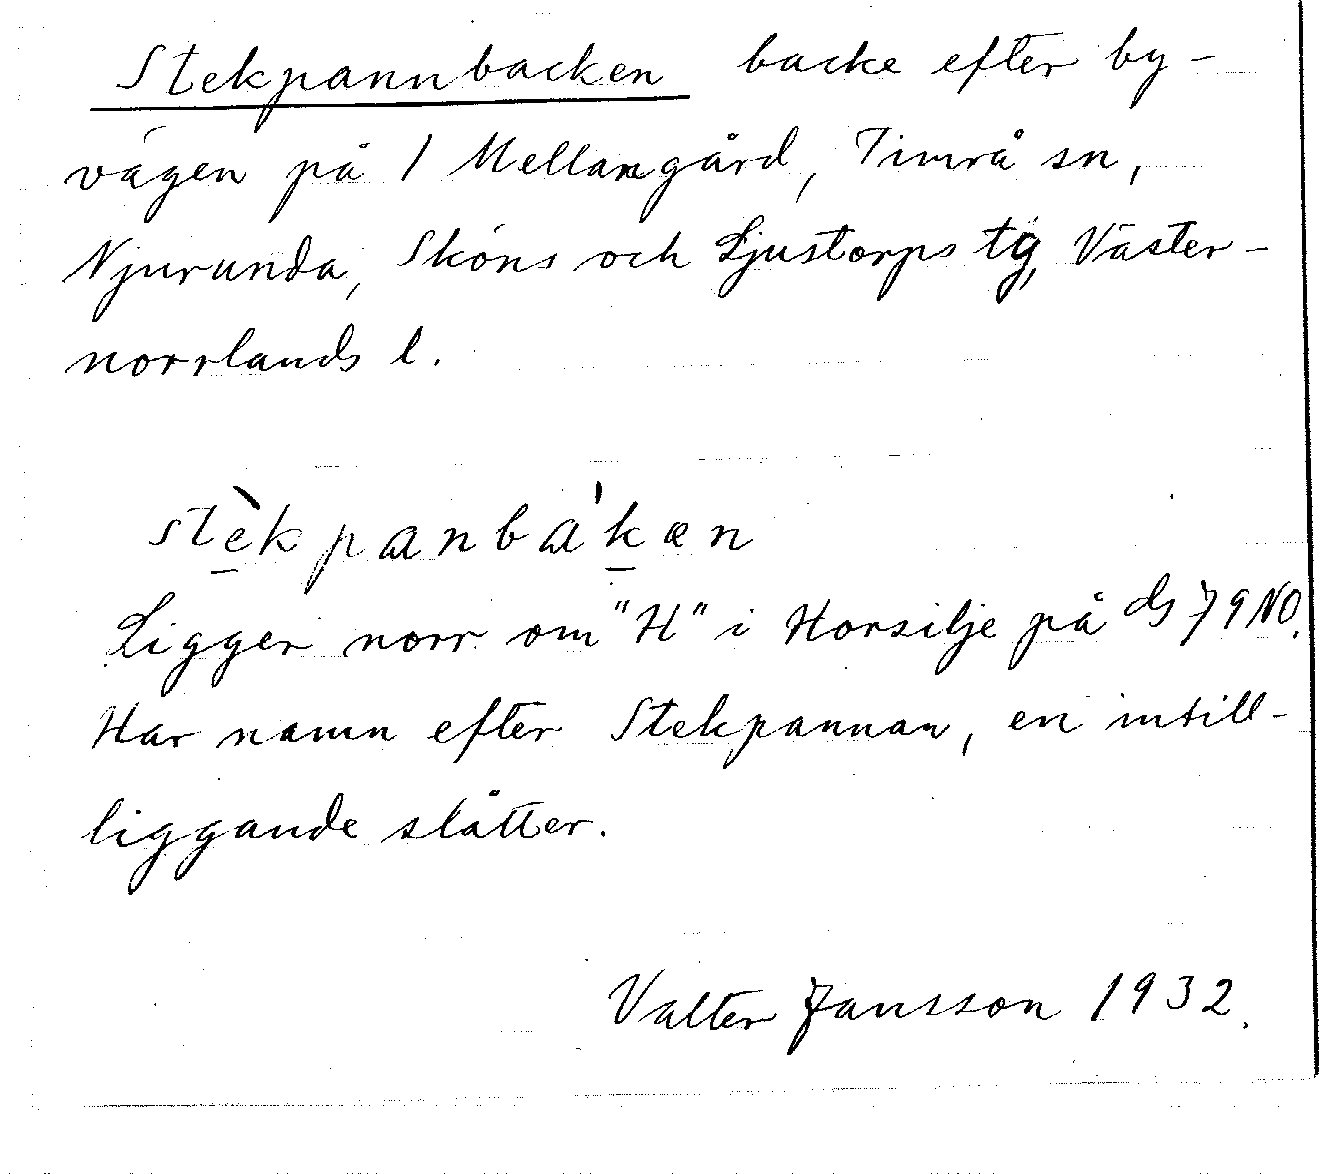 Stekpannbacken backe efter by-
vägen på 1 Mellangård, Timrå sn,
Njurunda, Sköns och Ljustorps tg, Väster-
norrlands l.
stèkpanbákæn
Ligger norr om "H" i Horsilje på ds 79 NO.
Har namn efter Stekpannan, en intill-
liggande slåtter.
Valter Jansson 1932.